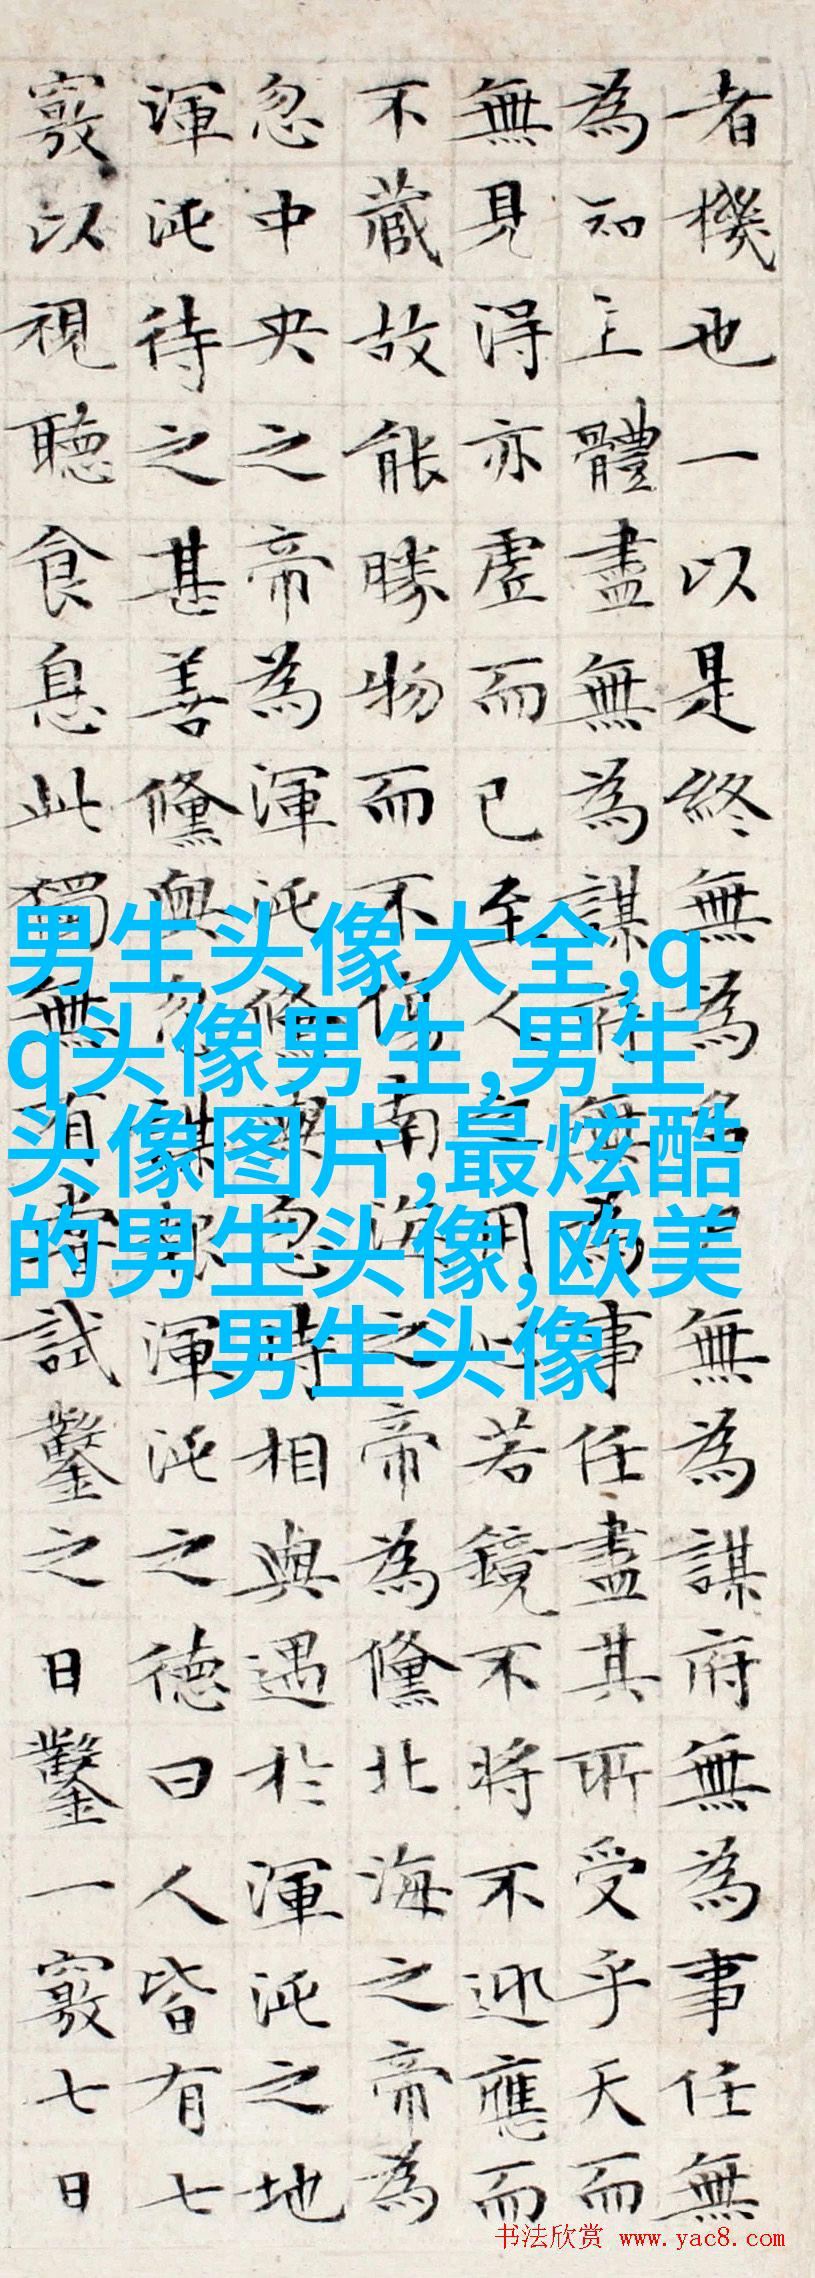 者機也一以是終無為名無為謀府無為事任無
為知主體盡無為謀府無為事任盡其所受乎天而
無見得亦虛而已至人之用心若鏡不將不迎應而
不藏故能勝物而不傷南海之帝為儵北海之帝為
忽中央之帝為渾沌儵與忽時相與遇於渾沌之地
渾沌待之甚善儵與忽謀報渾沌之德曰人皆有七
竅以視聽食息此獨無有嘗試鑿之日鑿一竅七日
男生头像大全,q
q头像男生,男生
头像图片,最炫酷
的男生头像,欧美
男生头像
书法欣赏 www.yac8.com